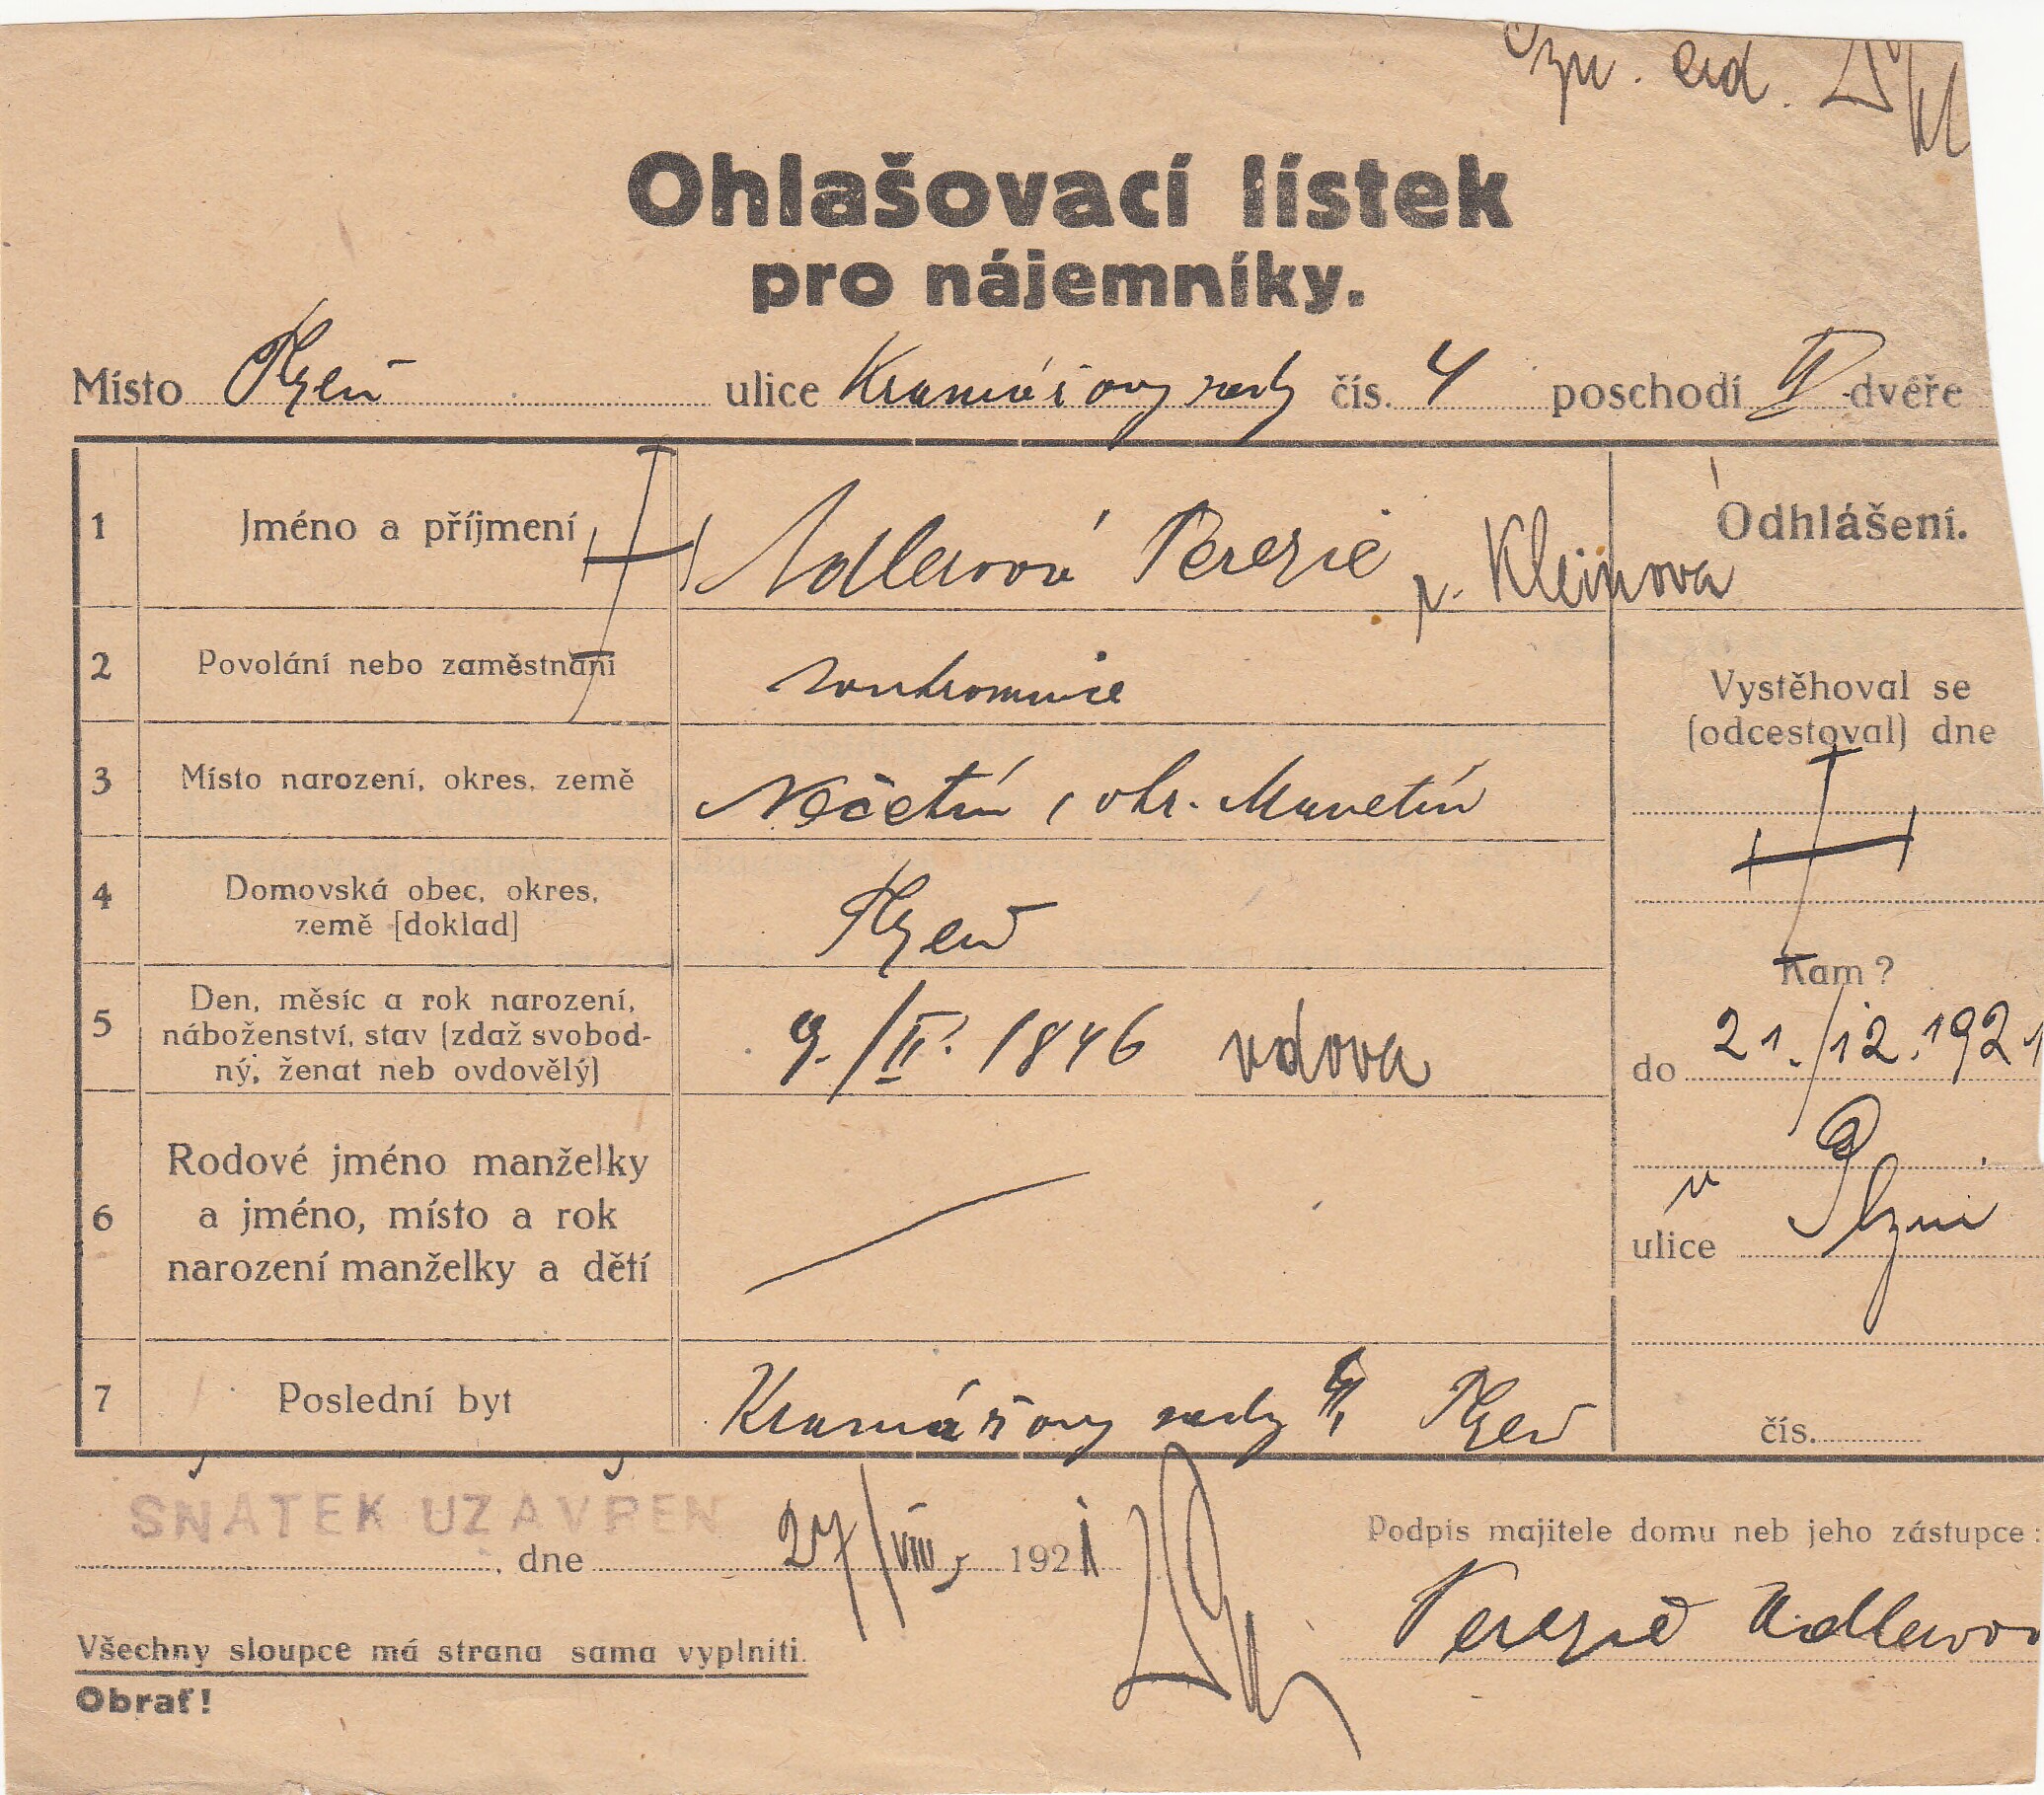 zpr. eid.
Ohlašovací lístek
pro nájemníky.
Místo Plzeň ulice Kramářovy sady čís. 4 poschodí II dvéře
1 Jméno a příjmení Adlerová Terezie r. Kleinova
Odhlášení.
2 Povolání nebo zaměstnání soukromnice
Vystěhoval se
(odcestoval) dne
3 Místo narození, okres, země Nečetín, okr. Manetín
4 Domovská obec, okres,
země [doklad] Plzeň
Kam?
5 Den, měsíc a rok narození,
náboženství, stav (zdaž svobod-
ný, ženat neb ovdovělý) 9./II. 1846 vdova
do 21./12. 1921
6 Rodové jméno manželky
a jméno, místo a rok
narození manželky a dětí
v Plzni
ulice
7 Poslední byt Kramářovy sady 4, Plzeň
čís.
SŇATEK UZAVŘEN
, dne 27/VIII, 1921
Podpis majitele domu neb jeho zástupce:
Terezie Adlerov
Všechny sloupce má strana sama vyplniti.
Obrať!